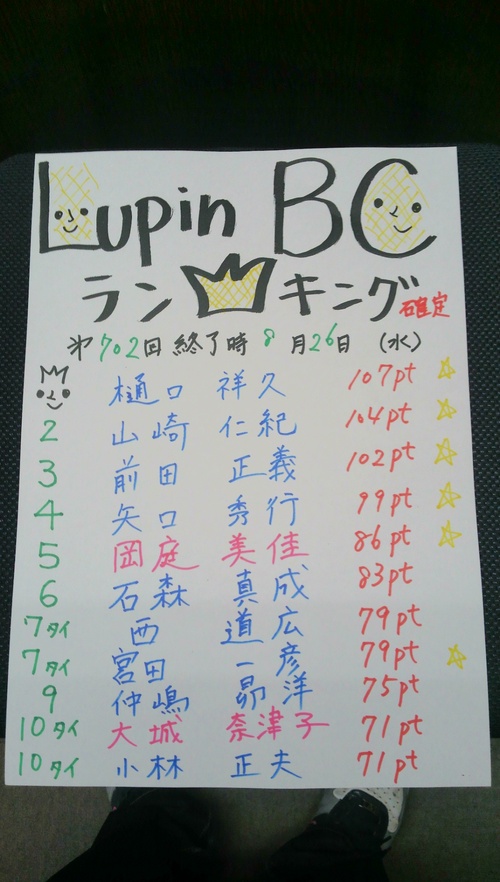 Lupin BC
ランキング 確定
第702回 終了時 8月26日 (水)
樋口 祥久 107pt ☆
2 山崎 仁紀 104pt ☆
3 前田 正義 102pt ☆
4 矢口 秀行 99pt ☆
5 岡庭 美佳 86pt ☆
6 石森 真成 83pt
7タイ 西 道広 79pt
7タイ 宮田 一彦 79pt ☆
9 仲嶋 昴洋 75pt
10タイ 大城 奈津子 71pt
10タイ 小林 正夫 71pt